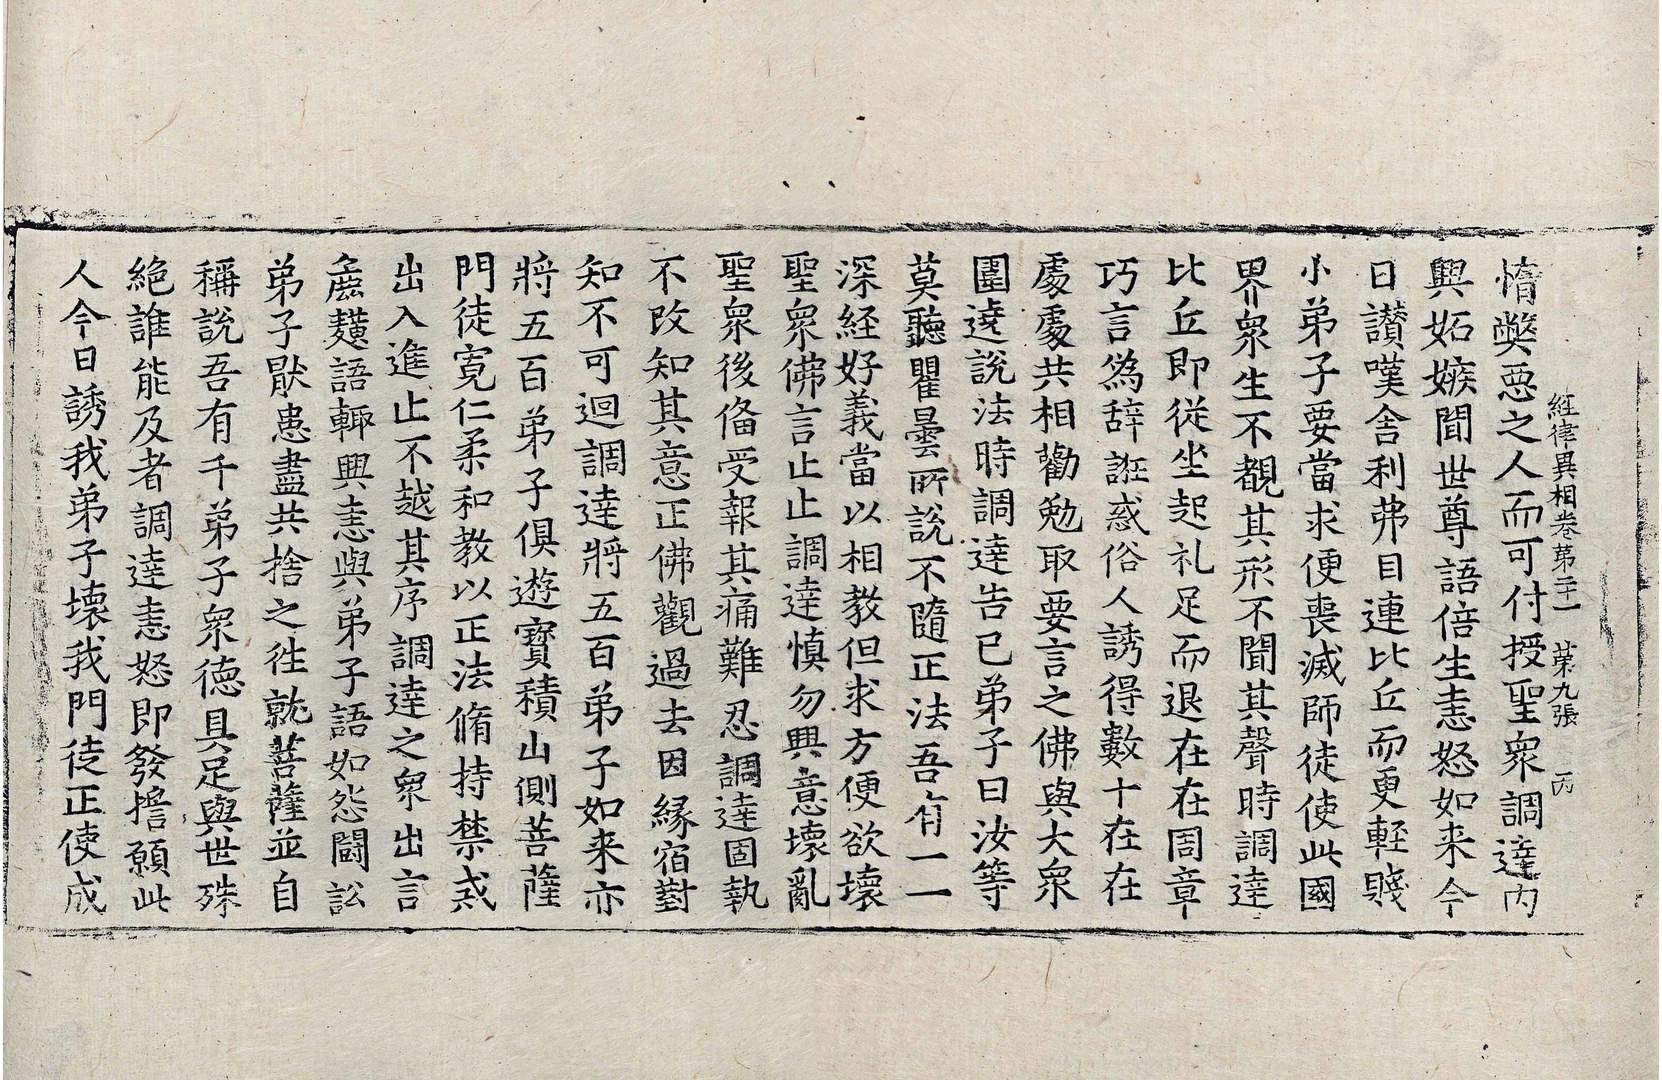 經律異相卷第二十一　第九張　丙
惰弊惡之人而可付授聖衆調達內
興妬嫉聞世尊語倍生恚怒如来今
日讃嘆舍利弗目連比丘而更輕賤
小弟子要當求便喪滅師徒使此國
界衆生不覩其形不聞其聲時調達
比丘即從坐起礼足而退在在周章
巧言爲辞誑惑俗人誘得數十在在
處處共相勸勉取要言之佛與大衆
圍遶說法時調達告已弟子曰汝等
莫聽瞿曇所說不隨正法吾有一一
深経好義當以相教但求方便欲壞
聖衆佛言止止調達慎勿興意壞亂
聖衆後俻受報其痛難忍調達固執
不改知其意正佛觀過去因緣宿對
知不可迴調達將五百弟子如来亦
將五百弟子俱遊寶積山側菩薩
門徒寬仁柔和教以正法脩持禁戒
出入進止不越其序調達之衆出言
麁獷語輙興恚與弟子語如怨鬪訟
弟子猒患盡共捨之徃就菩薩並自
稱說吾有千弟子衆德具足與世殊
絶誰能及者調達恚怒即發擔願此
人今日誘我弟子壞我門徒正使成